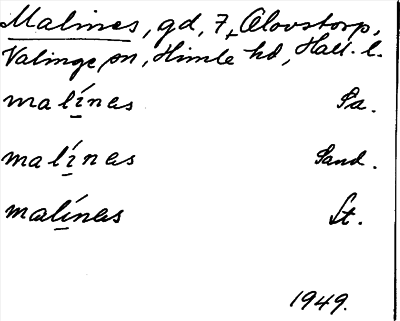 Malines, gd, 7, Alovstorp,
Valinge sn, Himle hd, Hall. l.
malínas Sa.
malínas Sand.
malínas Lt.
1949.